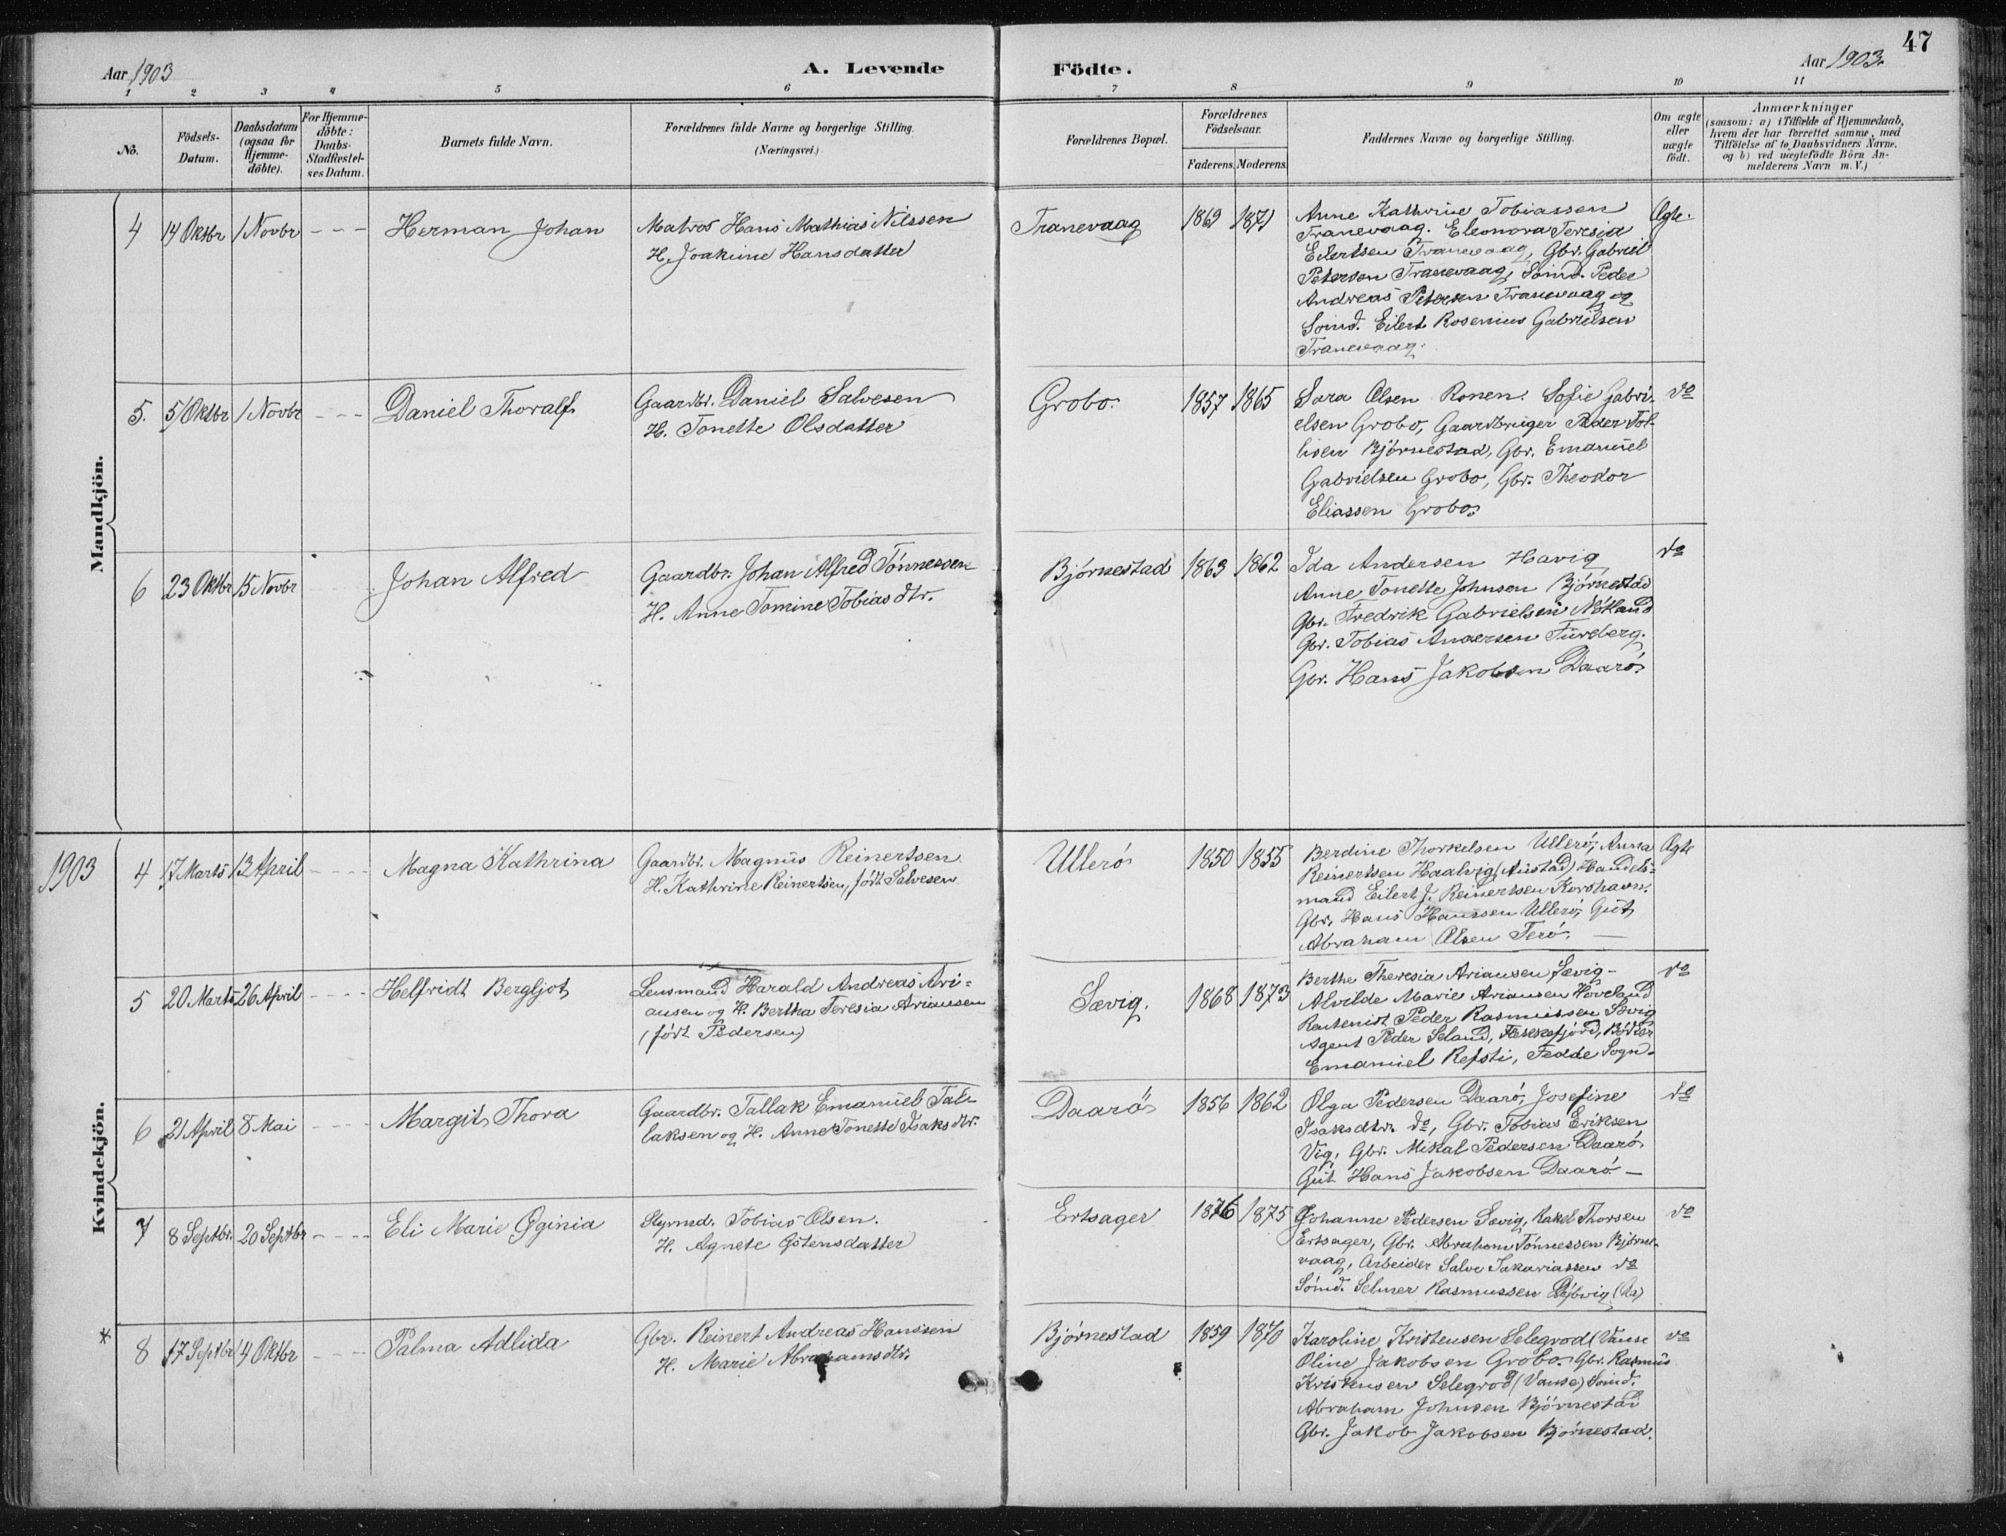 47
Aar 1903
A. Levende Födte.
Aar 1903.
1 2 3 4 5 6 7 8 9 10 11
No.
Födsels-
Datum.
Daabsdatum
(ogsaa for
Hjemme-
döbte).
For Hjemme-
döbte:
Daabs-
Stadfæstel-
ses Datum.
Barnets fulde Navn.
Forældrenes fulde Navne og borgerlige Stilling.
(Næringsvei.)
Forældrenes Bopæl.
Forældrenes
Födselsaar.
Faderens. Moderens.
Faddernes Navne og borgerlige Stilling.
Om ægte
eller
uægte
födt.
Anmærkninger
(saasom: a) i Tilfælde af Hjemmedaab,
hvem der har forrettet samme, med
Tilföielse af to Daabsvidners Navne,
og b) ved uægtefödte Börn An-
melderens Navn m. V.)
Mandkjön.
4 14 Oktbr 1 Novbr - - - Herman Johan
Matros Hans Mathias Nilssen
H. Joakime Hansdatter
Tranevaag 1869 1871
Anne Kathrine Tobiassen
Tranevaag. Eleonora Teresia
Eilertsen Tranevaag, Gbr. Gabriel
Petersen Tranevaag, Sömd. Peder
Andreas Petersen Tranevaag og
Sömd. Eilert Rosenius Gabrielsen
Tranevaag.
Ægte.
5. 5/Oktbr 1 Novbr - - - Daniel Thoralf
Gaardbr. Daniel Salvesen
H. Tonette Olsdatter
Grobo. 1857 1865
Sara Olsen Ronen. Sofie Gabri-
elsen Grobo, Gaardbruger Peder Tol-
lisen Bjørnestad, Gbr. Emanuel
Gabrielsen Grobo, Gbr. Theodor
Eliassen Grobo.
do
6 23 Oktbr 15 Novbr Johan Alfred
Gaardbr. Johan Alfred Tønnessen
H. Anne Tomine Tobiasdtr.
Bjørnestad 1863 1862
Ida Andersen Havig
Anne Tonette Johnsen Bjørnestad
Gbr. Fredrik Gabrielsen Nötland
Gbr. Tobias Andersen Fureberg.
Gbr. Hans Jakobsen Daarö
do
Kvindekjön.
1903
4 17 Marts 13 April - - - - Magna Kathrina
Gaardbr. Magnus Reinertsen
H. Kathrine Reinertsen, født Salvesen
Ullerö 1850 1855
Berdine Thorkelsen Ullerö, Anna
Reinertsen Haalvig (Austad) Handels-
mand Eilert J. Reinertsen Korshavn.
Gbr. Hans Hanssen Ullerö, Gut
Abraham Olsen Terö.
Ægte
5 20 Marts 26 April - - - - Helfridt Bergljot
Lensmand Harald Andreas Ari-
ansen og H. Bertha Teresia Ariansen
(født Pedersen)
Sævig. 1868 1873
Berthe Theresia Ariansen Sævig -
Alvilde Marie Ariansen Hoveland
Rentenist Peder Rasmussen Sævig
Agent Peder Seland, Flekkefjord, Bødker
Emanuel Refsti, Fedde Sogn-
do
6 21 April 8 Mai - - - - Margit Thora
Gaardbr. Tallak Emanuel Tal-
laksen og H. Anne Tonette Isaksdtr.
Daarö 1856 1862
Olga Pedersen Daarö, Josefine
Isaksdtr. do, Gbr. Tobias Eriksen
Vig, Gbr. Mikal Pedersen Daarö
Gut Hans Jakobsen Daarö -
do
7 8 Septbr. 20 Septbr - - - - Eli Marie Øginia
Styrmd. Tobias Olsen.
H. Agnete Östensdatter
Ertsager 1876 1875
Johanne Pedersen Sævig, Rakel Thorsen
Ertsager, Gbr. Abraham Tönnessen Bjørne-
vaag, Arbeider Salve Sakariassen do
Sömd. Selmer Rasmussen Dybvig (Aa)
do
* 8 17 Septbr 4 Oktbr - - - - Palma Adlida
Gbr. Reinert Andreas Hanssen
H. Marie Abrahamsdtr.
Bjørnestad 1859 1870
Karoline Kristensen Selegrod (Vanse
Oline Jakobsen Grobo. Gbr. Rasmus
Kristensen Selegrod (Vanse) Sömd.
Abraham Johnsen Bjørnestad
Gbr. Jakob Jakobsen Bjørnestad.
do